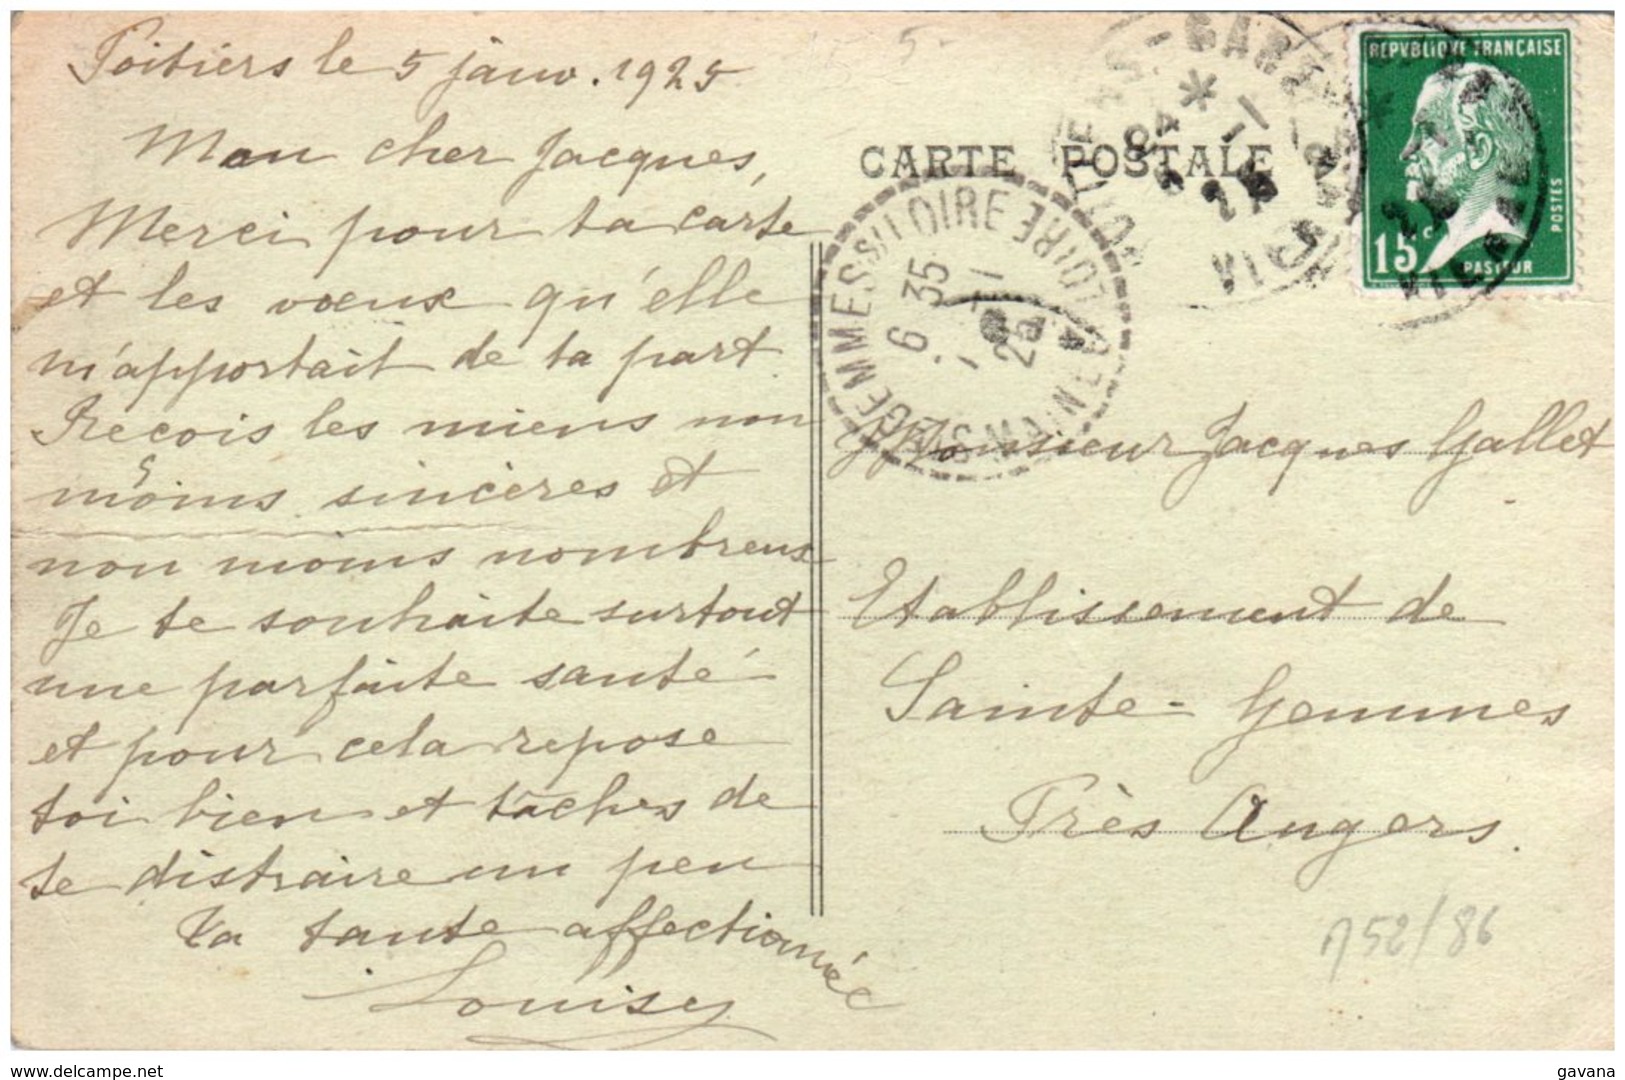 Poitiers le 5 janv. 1925
Mon cher Jacques,
Merci pour ta carte
et les voeux qu'elle
m'apportait de ta part
Reçois les miens non
moins sincères et
non moins nombreux
Je te souhaite surtout
une parfaite santé
et pour cela repose
toi bien et tâches de
te distraire un peu
Ta tante affectionnée
Louise
CARTE POSTALE
REPVBLIQVE FRANÇAISE
15c
PASTEUR
POSTES
GEMMES S/ LOIRE
MAINE & LOIRE
6 35
6 - 1
25
Monsieur Jacques Gallet
Etablissement de
Sainte-Gemmes
Près Angers.
52/86
delcampe.net
gavana